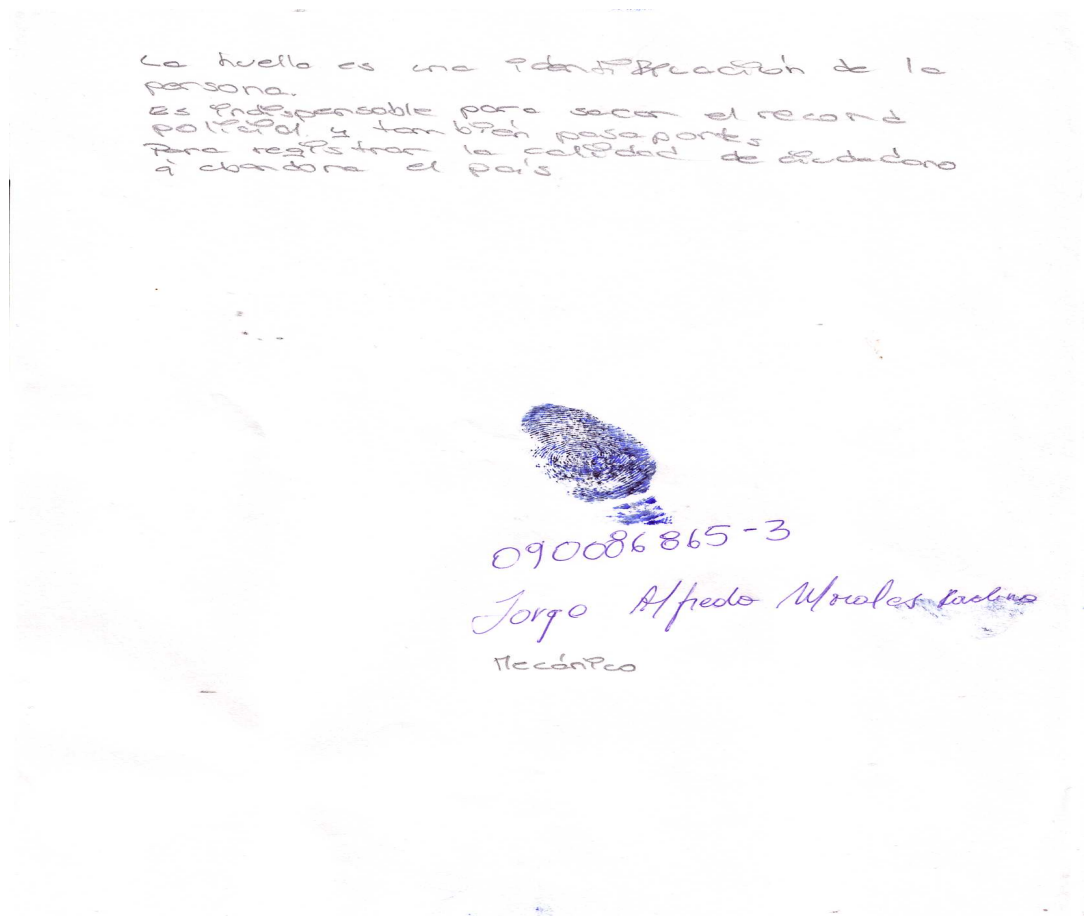 La huella es una identificación de la
persona.
Es indispensable para sacar el record
policial y tambien pasaportes
Para registrar la calidad de ciudadano
ó abandona el país
090086865-3
Jorge Alfredo Morales
Mecánico